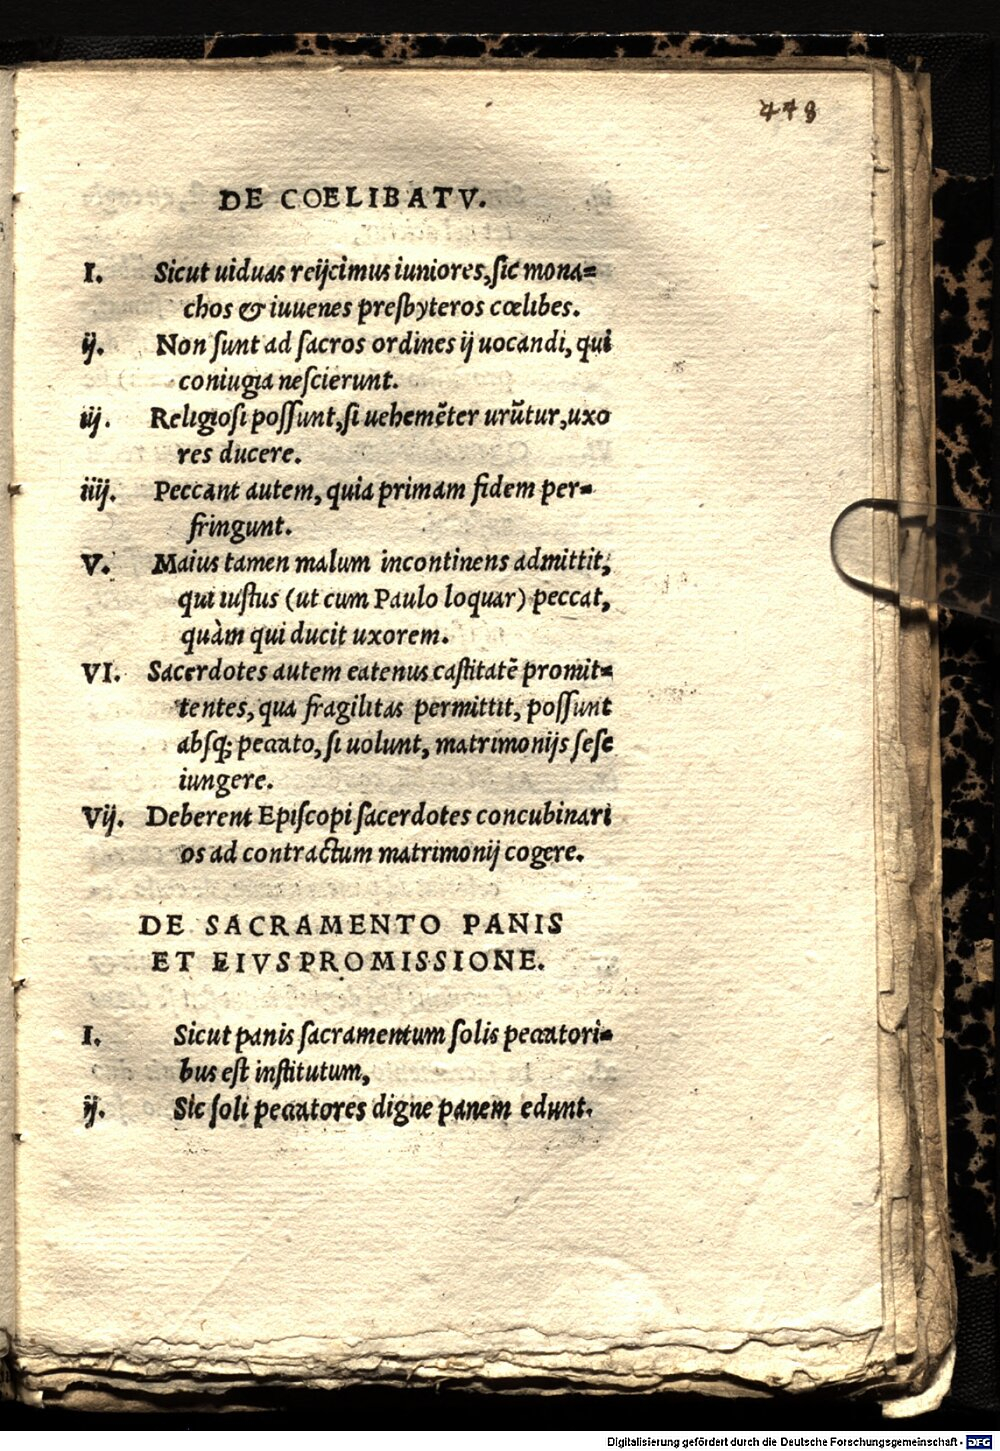 448
DE COELIBATV.
I. Sicut uiduas reijcimus iuniores, sic mona=
chos & iuuenes presbyteros cœlibes.
ij. Non sunt ad sacros ordines ij uocandi, qui
coniugia nescierunt.
iij. Religiosi possunt, si uehemēter urūtur, uxo
res ducere.
iiij. Peccant autem, quia primam fidem per=
fringunt.
V. Maius tamen malum incontinens admittit,
qui iustus (ut cum Paulo loquar) peccat,
quàm qui ducit uxorem.
VI. Sacerdotes autem eatenus castitatē promit=
tentes, qua fragilitas permittit, possunt
absq; peccato, si uolunt, matrimonijs sese
iungere.
Vij. Deberent Episcopi sacerdotes concubinari
os ad contractum matrimonij cogere.
DE SACRAMENTO PANIS
ET EIVS PROMISSIONE.
I. Sicut panis sacramentum solis peccatori=
bus est institutum,
ij. Sic soli peccatores digne panem edunt.
Digitalisierung gefördert durch die Deutsche Forschungsgemeinschaft - DFG